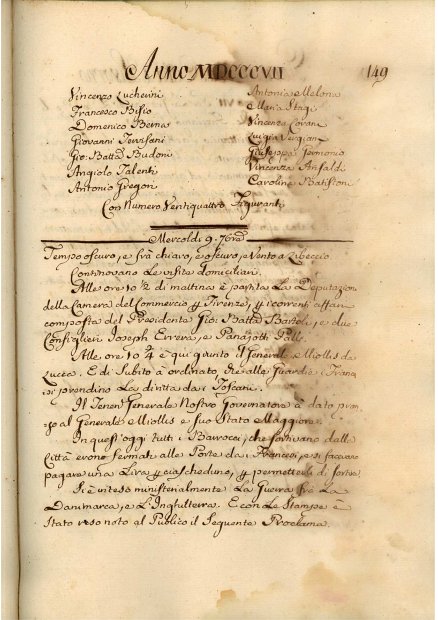 Anno MDCCCVII 149
Vincenzo Zucherini Antonia Melona
Francesco Bisio Maria Stagi
Domenico Berna Vincenza Covani
Giovanni Terissani Luigia
Gio: Batta Budoni Giuseppa Germonio
Angiolo Talenti Vincenza Ansaldi
Antonio Gregori Carolina Battistoni
Con Numero Ventiquattro Figuranti
Mercoldi 9. 7bre
Tempo oscuro, e frà chiaro, e oscuro, e Vento a Libeccio
Continovano le visite domiciliari.
Alle ore 10 ½ di mattina è partita La Deputazione
della Camera del Commercio per Firenze, per i correnti affari
composta del Presidente Gio: Batta Bartoli, e due
Consiglieri Joseph Errera, e Panajotti Palli.
Alle ore 10 ¾ è qui giunto il Generale Miollis da
Lucca. E di Subito à ordinato, che alle Guardie i Frances
si prendino La diritta da i Toscani.
Il Tenen: Generale Nostro Governatore à dato pran-
zo al Generale Miollis e suo Stato Maggiore.
In quest'oggi tutti i Barrocci, che sortivano dalla
Città erono fermati alle Porte da i Francesi, e si facevano
pagare una Lira per ciascheduno, per permetterli di sortire
Si è inteso ministerialmente La Guerra frà La
Danimarca, e L'Inghilterra. E con le Stampe è
Stato reso noto al Publico il Seguente Proclama.